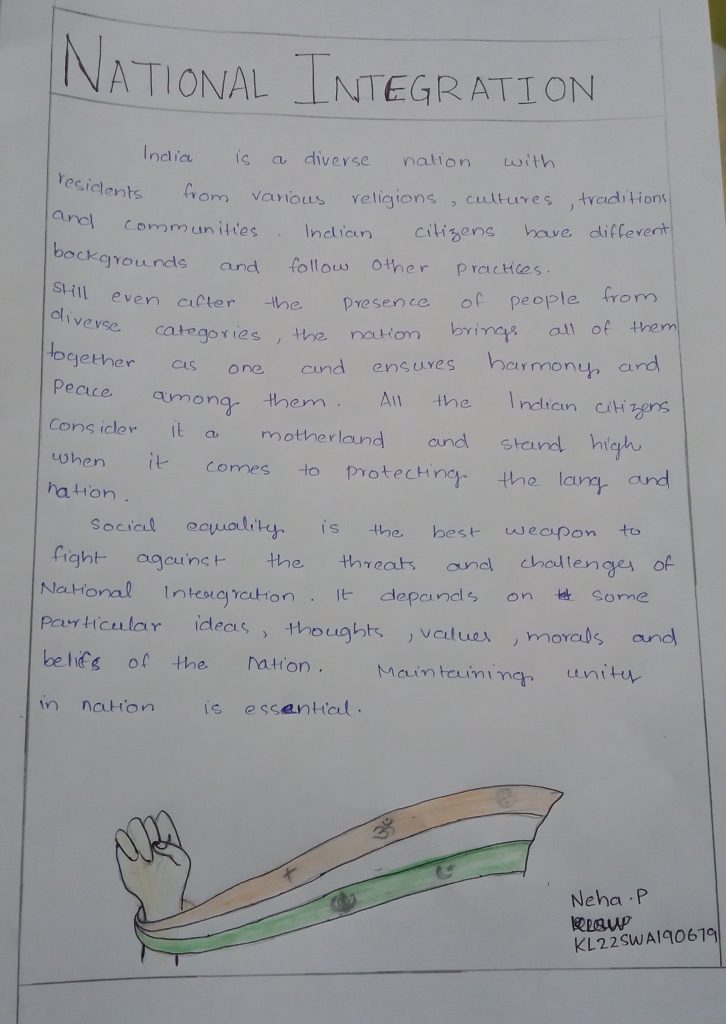 NATIONAL INTEGRATION
India is a diverse nation with
residents from various religions, cultures, traditions
and communities. Indian citizens have different
backgrounds and follow other practices.
Still even after the presence of people from
diverse categories, the nation brings all of them
together as one and ensures harmony and
Peace among them. All the Indian citizens
consider it a motherland and stand high
when it comes to protecting the lang and
nation.
Social equality is the best weapon to
fight against the threats and challenges of
National Inteagration. It depends on some
particular ideas, thoughts, values, morals and
beliefs of the nation. Maintaining unity
in nation is essential.
ॐ
Neha.P
KL22SWA190679